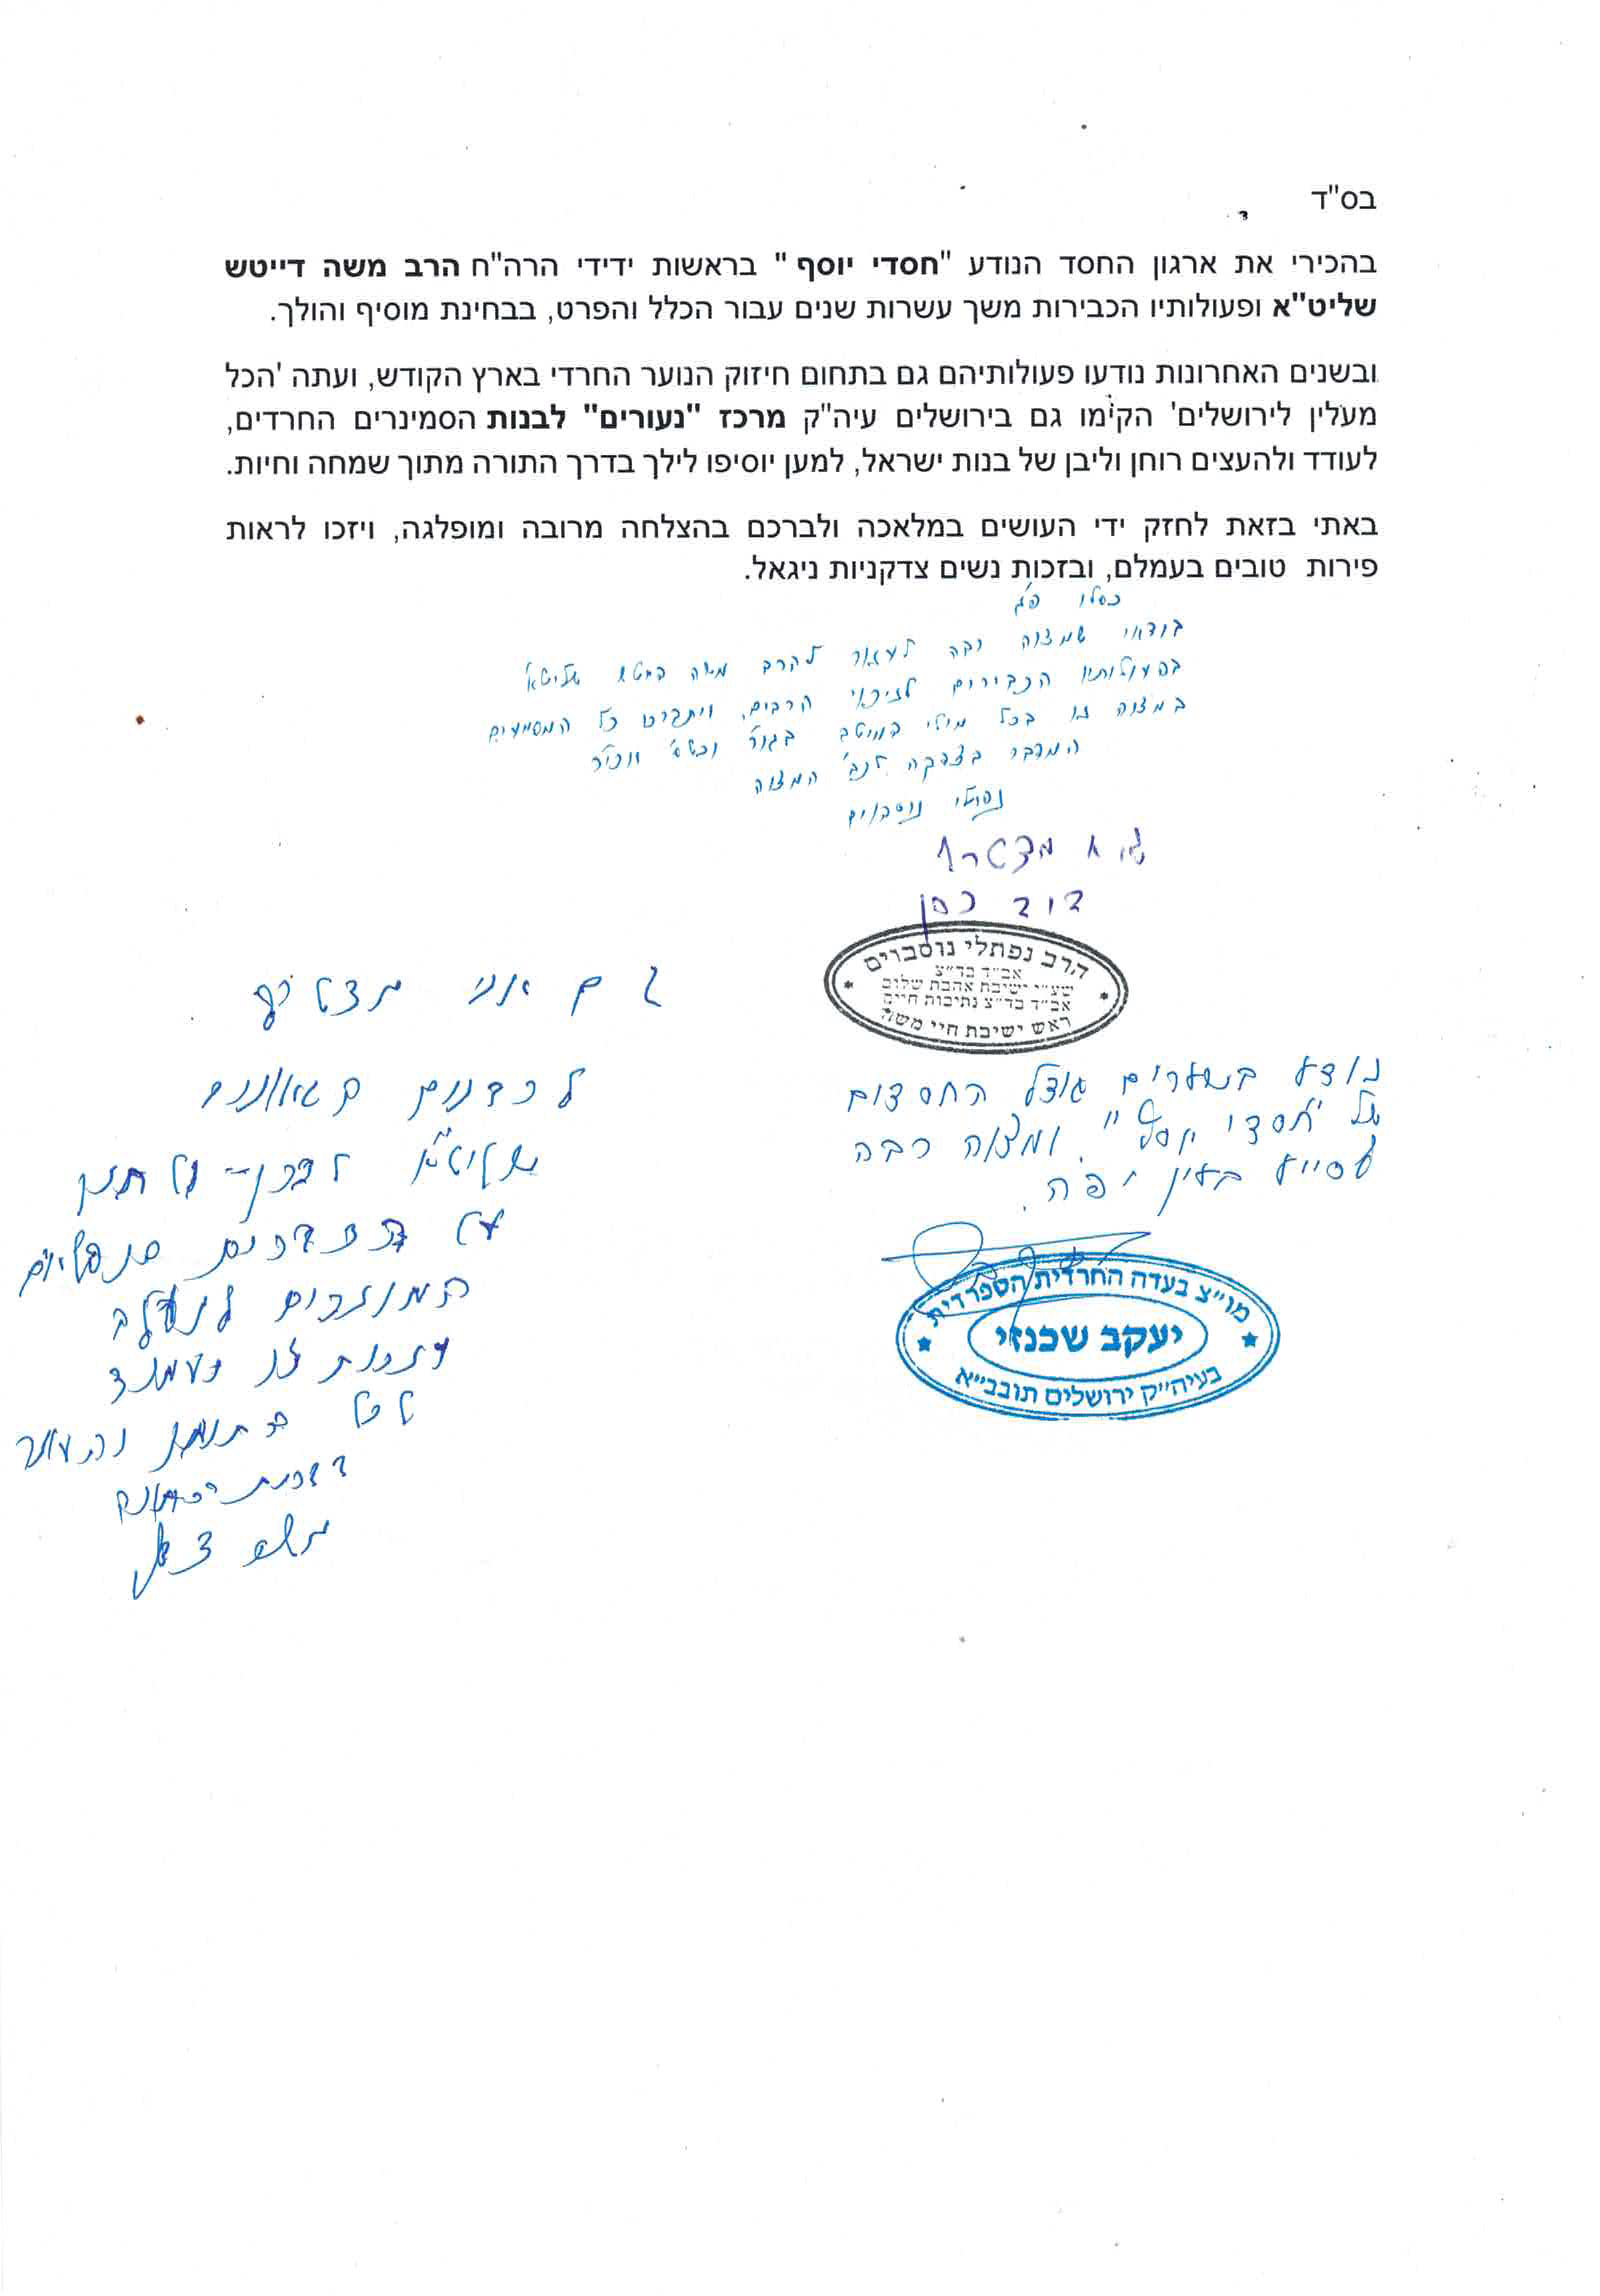 בס"ד
בהכירי את ארגון החסד הנודע "חסדי יוסף " בראשות ידידי הרה"ח הרב משה דייטש
שליט"א ופעולותיו הכבירות משך עשרות שנים עבור הכלל והפרט, בבחינת מוסיף והולך.
ובשנים האחרונות נודעו פעולותיהם גם בתחום חיזוק הנוער החרדי בארץ הקודש, ועתה 'הכל
מעלין לירושלים' הקימו גם בירושלים עיה"ק מרכז "נעורים" לבנות הסמינרים החרדים,
לעודד ולהעצים רוחן וליבן של בנות ישראל, למען יוסיפו לילך בדרך התורה מתוך שמחה וחיות.
באתי בזאת לחזק ידי העושים במלאכה ולברכם בהצלחה מרובה ומופלגה, ויזכו לראות
פירות טובים בעמלם, ובזכות נשים צדקניות ניגאל.
כסלו פ"ג
בודאי שמצוה רבה לעזור להרב משה דייטש שליט"א
בפעולותיו הכבירים לזיכוי הרבים, ויתברכו כל המסייעים
במצוה זו בכל מילי דמיטב בגו"ר
המדבר בצדקה לכב' המצוה
נפתלי נוסבוים
גם אני מצטרף
דוד כהן
הרב נפתלי נוסבוים
אב"ד בד"צ
שע"י ישיבת אהבת שלום
אב"ד בד"צ נתיבות חיים
ראש ישיבת חיי משה
נודע בשערים גודל החסדים
של "חסדי יוסף". ומצוה רבה
לסייע בעין יפה.
מו"צ בעדה החרדית הספרדית
יעקב שכנזי
בעיה"ק ירושלים תובב"א
גם אני מצטרף
לרבנים הגאונים
שליט"א
על